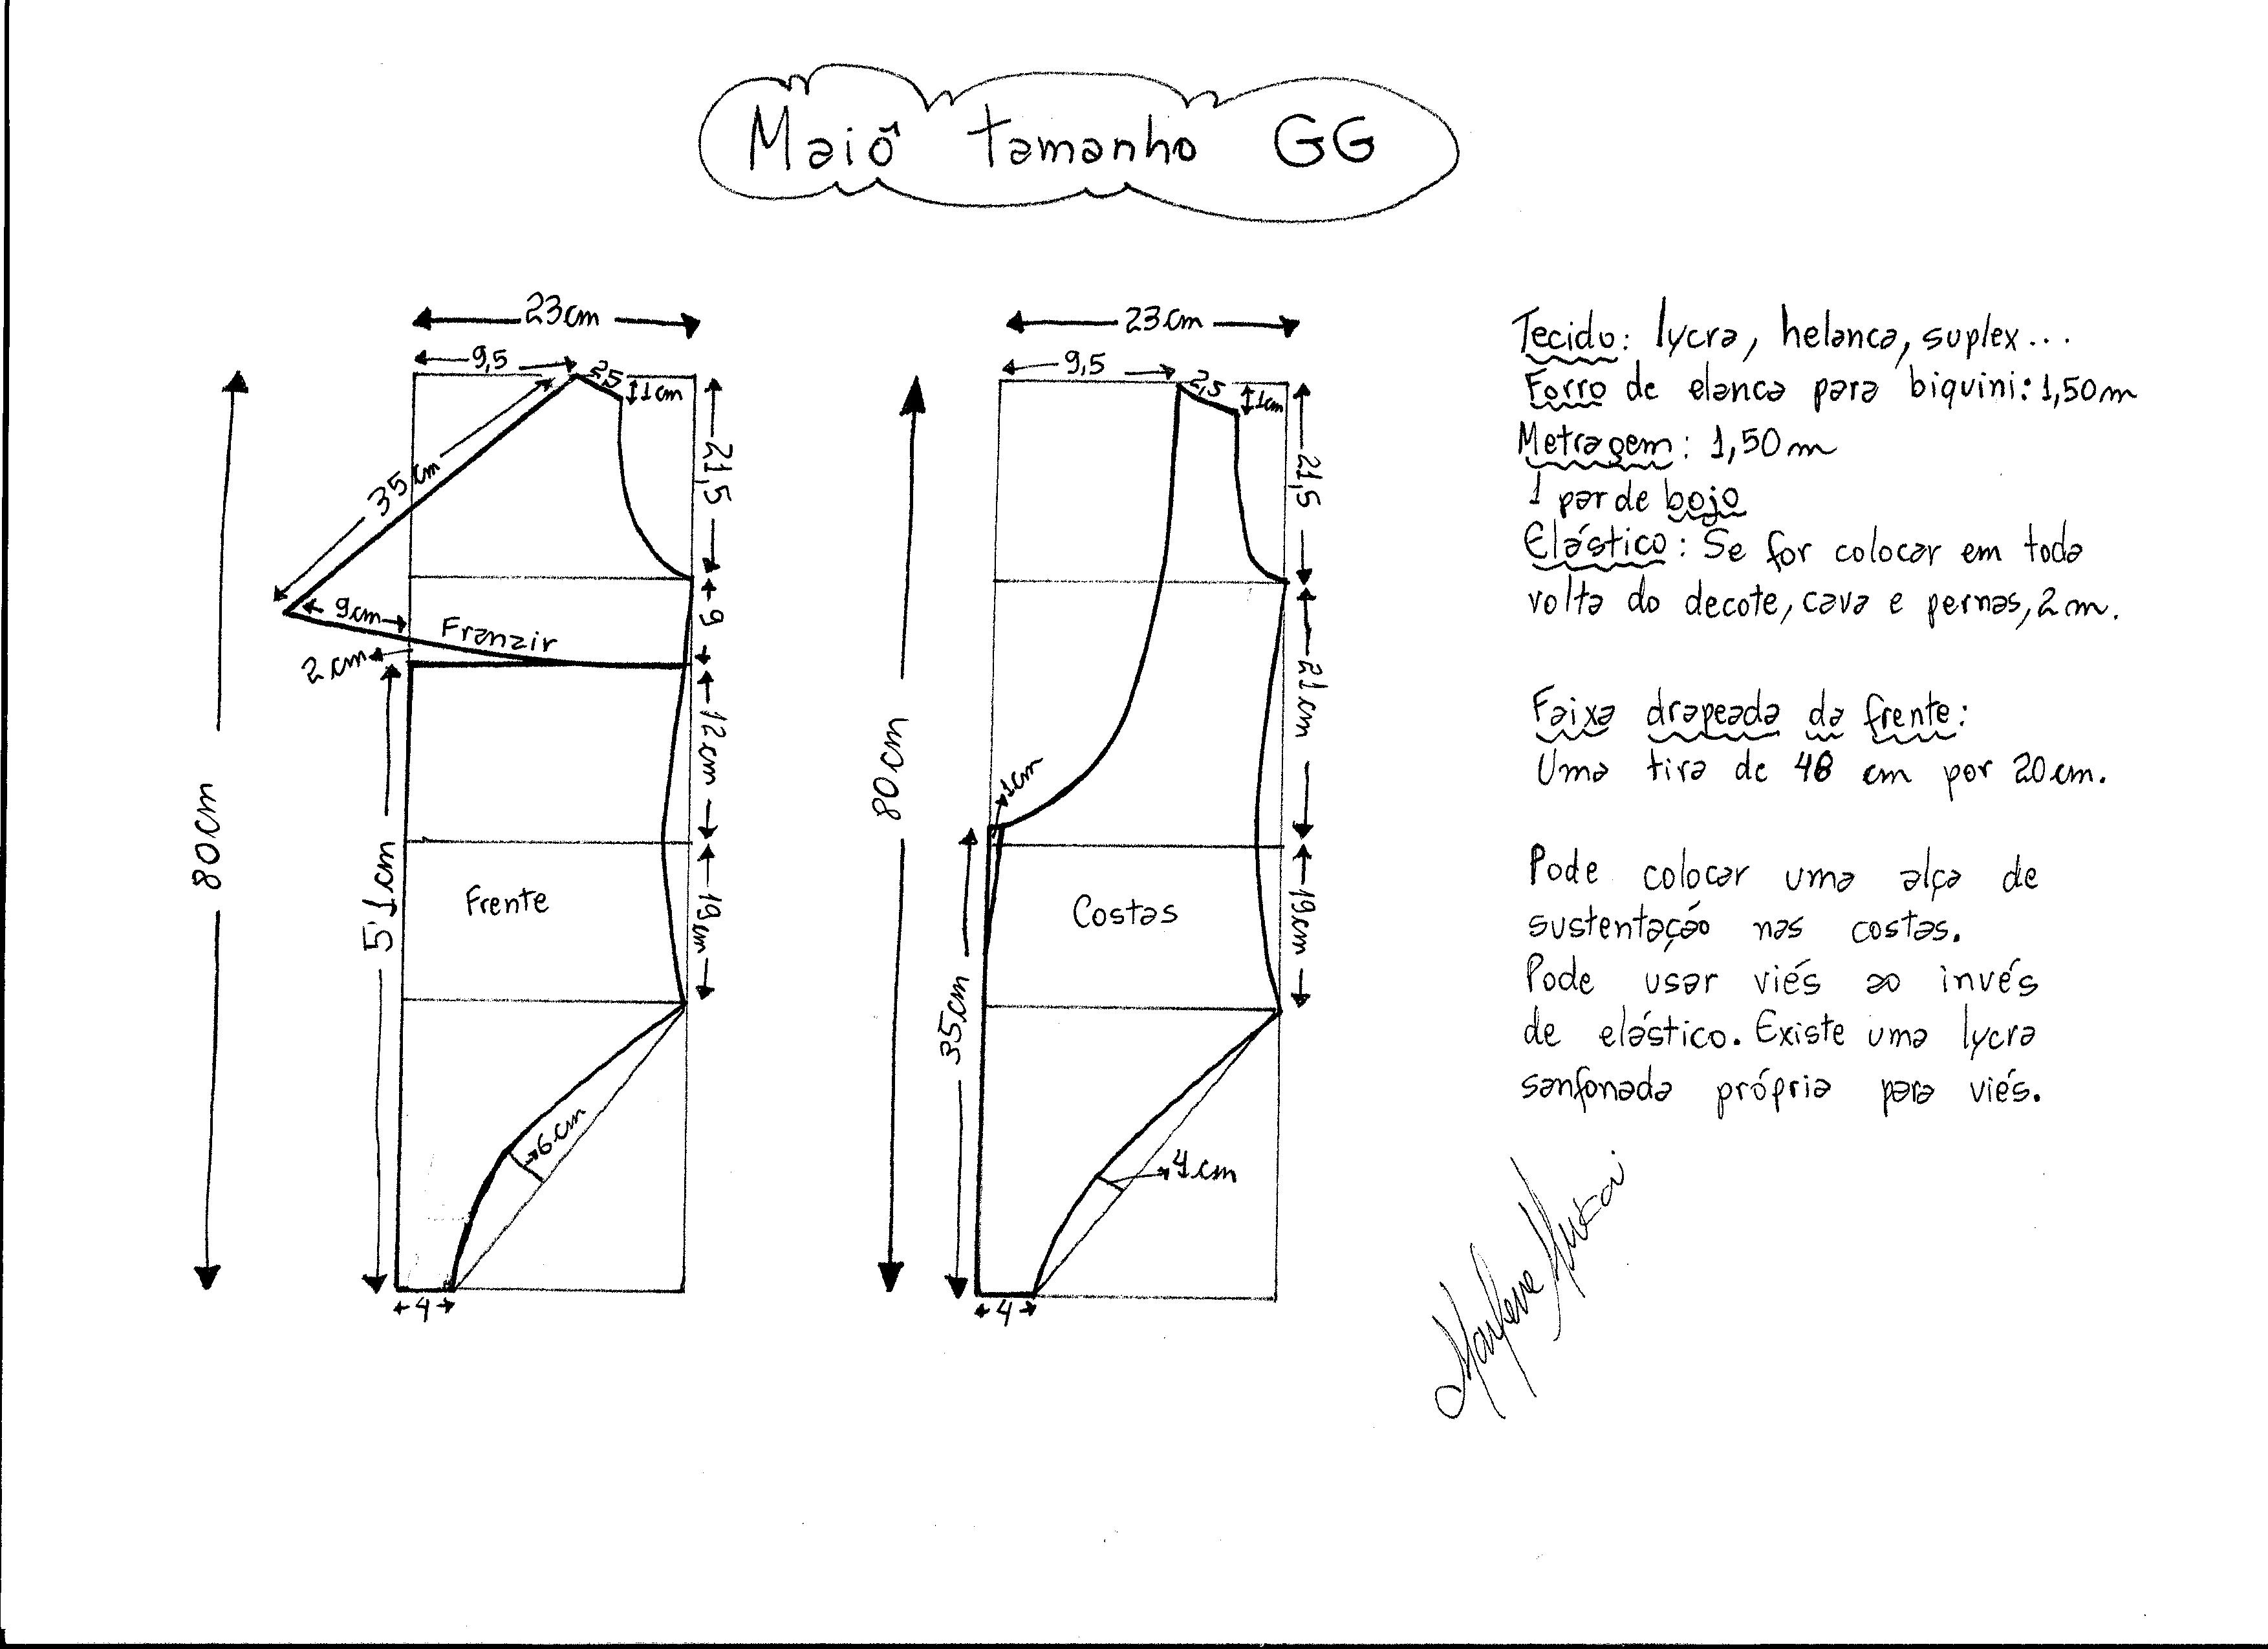 Maiô tamanho GG
23cm
9,5
2,5
1cm
35cm
21,5
9cm
Franzir
9
2cm
12cm
80cm
51cm
Frente
19cm
6cm
4
23cm
9,5
2,5
1cm
21,5
21cm
80cm
1cm
Costas
19cm
35cm
4cm
4
Tecido: lycra, helanca, suplex...
Forro de elanca para biquini: 1,50m
Metragem: 1,50m
1 par de bojo
Elástico: Se for colocar em toda
volta do decote, cava e pernas, 2m.
Faixa drapeada da frente:
Uma tira de 48 cm por 20cm.
Pode colocar uma alça de
sustentação nas costas.
Pode usar viés ao invés
de elástico. Existe uma lycra
sanfonada própria para viés.